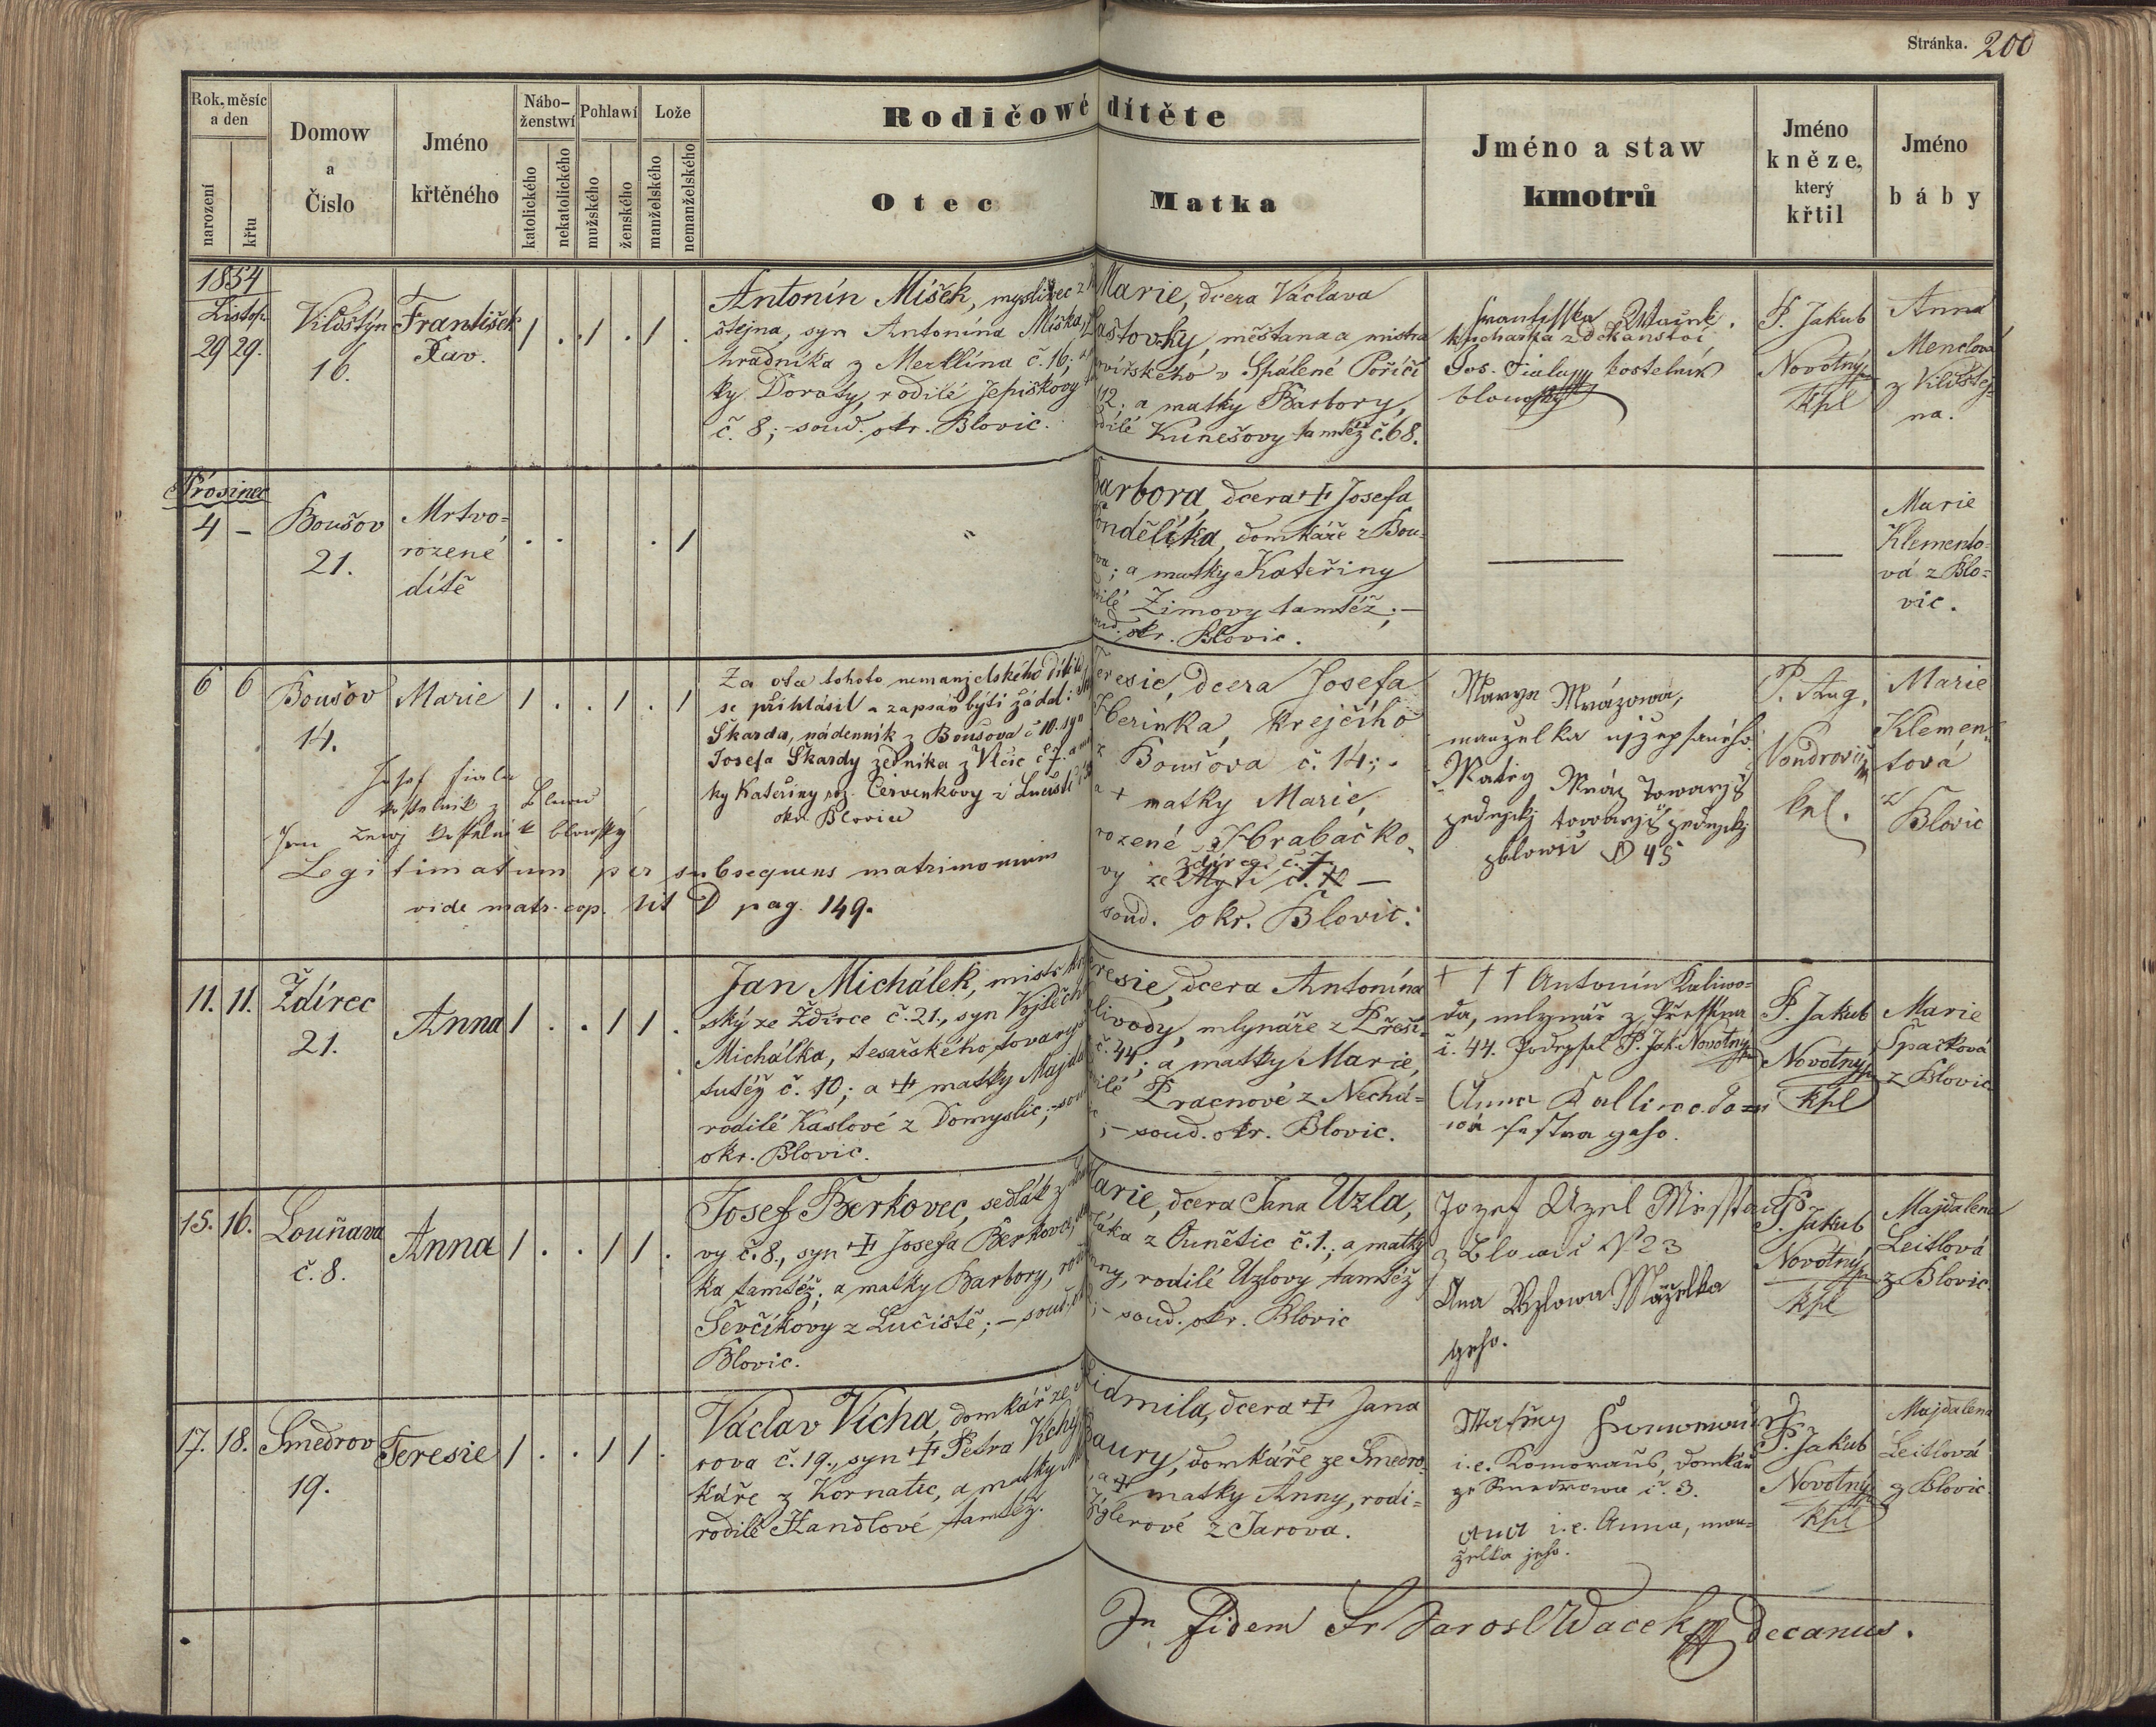 Stránka. 200
Rok, měsíc
a den
narození
křtu
Domow
a
Číslo
Jméno
křtěného
Nábo-
ženstwí
katolického
nekatolického
Pohlawí
mužského
ženského
Lože
manželského
nemanželského
Rodičowé dítěte
Otec
Matka
Jméno a staw
kmotrů
Jméno
kněze,
který
křtil
Jméno
báby
1854
Listop.
29 29.
Vildštýn
16.
František
Xav.
1 . 1 . 1 .
Antonín Míšek, myslivec z
štejna, syn Antonína Míška,
hradníka z Merklína č. 16; a
ky Doroty, rodilé Jepiškovy
č. 8; soud. okr. Blovic.
Marie, dcera Václava
Laštovky, měšťana a mistra
kovářského v Spálené Poříčí
12. a matky Barbory,
rodilé Kunešovy tamtéž č. 68.
kuchařka z děkanství,
Jos. Fiala kostelník
P. Jakub
Novotný
kpl
Anna
Menclová
z Vildštej-
na.
Prosinec
4 –
Boušov
21.
Mrtvo-
rozené
dítě
. . . 1
Barbora, dcera + Josefa
Pondělíka, domkáře z Bou-
; a matky Kateřiny
Zimovy tamtéž; –
soud. okr. Blovic.
Marie
Klemento-
vá z Blo-
vic.
6 6
Boušov
14.
Marie
1 . . 1 . 1
Za otce tohoto nemanželského dítěte
se přihlásil a zapsán býti žádal:
Škarda, nádenník z Boušova č 10. syn
Josefa Škardy zedníka z Vlčic č 7. a
ky Kateřiny roz. Červenkovy z Lučiště
okr. Blovic
Josef Fiala
kostelník z Blowic
Jan kostelník blowský
Legitimatum per subsequens matrimonium
vide matr. cop. lit D pag. 149.
Teresie, dcera Josefa
Herinka, krejčího
z Boušova č. 14;
a + matky Marie,
rozené Hrabačko-
vy ze Ždírce č. 7. –
soud. okr. Blovic.
Marya Mrázowa,
manželka
Matěg Mráz Towaryš
zednický towaryš zednický
zblowic N 45
P. Aug.
Vondrovic
kpl.
Marie
Klemen-
tová
z
Blovic
11. 11.
Ždírec
21.
Anna
1 . . 1 1 .
Jan Michálek, mistr
ský ze Ždírce č. 21., syn Vojtěcha
Michálka, tesařského tovaryše
tutéž č. 10; a + matky Majda
rodilé Káslové z Domyslic; – soud
okr. Blovic.
Teresie, dcera Antonína
Kalivody, mlynáře z Přeší-
č. 44; a matky Marie,
rodilé Pracnové z Nechá-
; – soud. okr. Blovic.
+ + + Antonín Kaliwo-
da, mlynář z Přešína
č. 44. Podepsal P. Jak. Novotný
Anna Kalliwodo-
wá sestra geho.
P. Jakub
Novotný
kpl
Marie
Špačková
z Blovic
15. 16.
Louňava
č. 8.
Anna
1 . . 1 1 .
Josef Berkovec, sedlák z
vy č. 8., syn + Josefa Berkovce,
ka tamtéž; a matky Barbory, rodilé
Ševčíkovy z Lučiště; – soud. okr.
Blovic.
Marie, dcera Jana Uzla,
sedláka z Ounětic č. 1.; a matky
Anny, rodilé Uzlovy tamtéž
; – soud. okr. Blovic
Jozef Uzel
z Blowic N 23
Ana Uzlowa Manželka
geho.
P. Jakub
Novotný
kpl
Majdalena
Leitlová
z Blovic.
17. 18.
Smedrov
19.
Teresie
1 . . 1 1 .
Václav Vícha, domkář ze
rova č. 19., syn + Petra Vichy
káře z Kornatic, a matky
rodilé Handlové tamtéž.
Lidmila, dcera + Jana
Baury, domkáře ze Smedro-
, a + matky Anny, rodi-
Zíglerové z Jarova.
Matěg
i.e. Komoraus, domkář
ze Smedrowa č. 3.
ana i.e. Anna, man-
želka jeho.
P. Jakub
Novotný
kpl
Majdalena
Leitlová
z Blovic.
In fidem Fr Jarosl Wacek decanus.